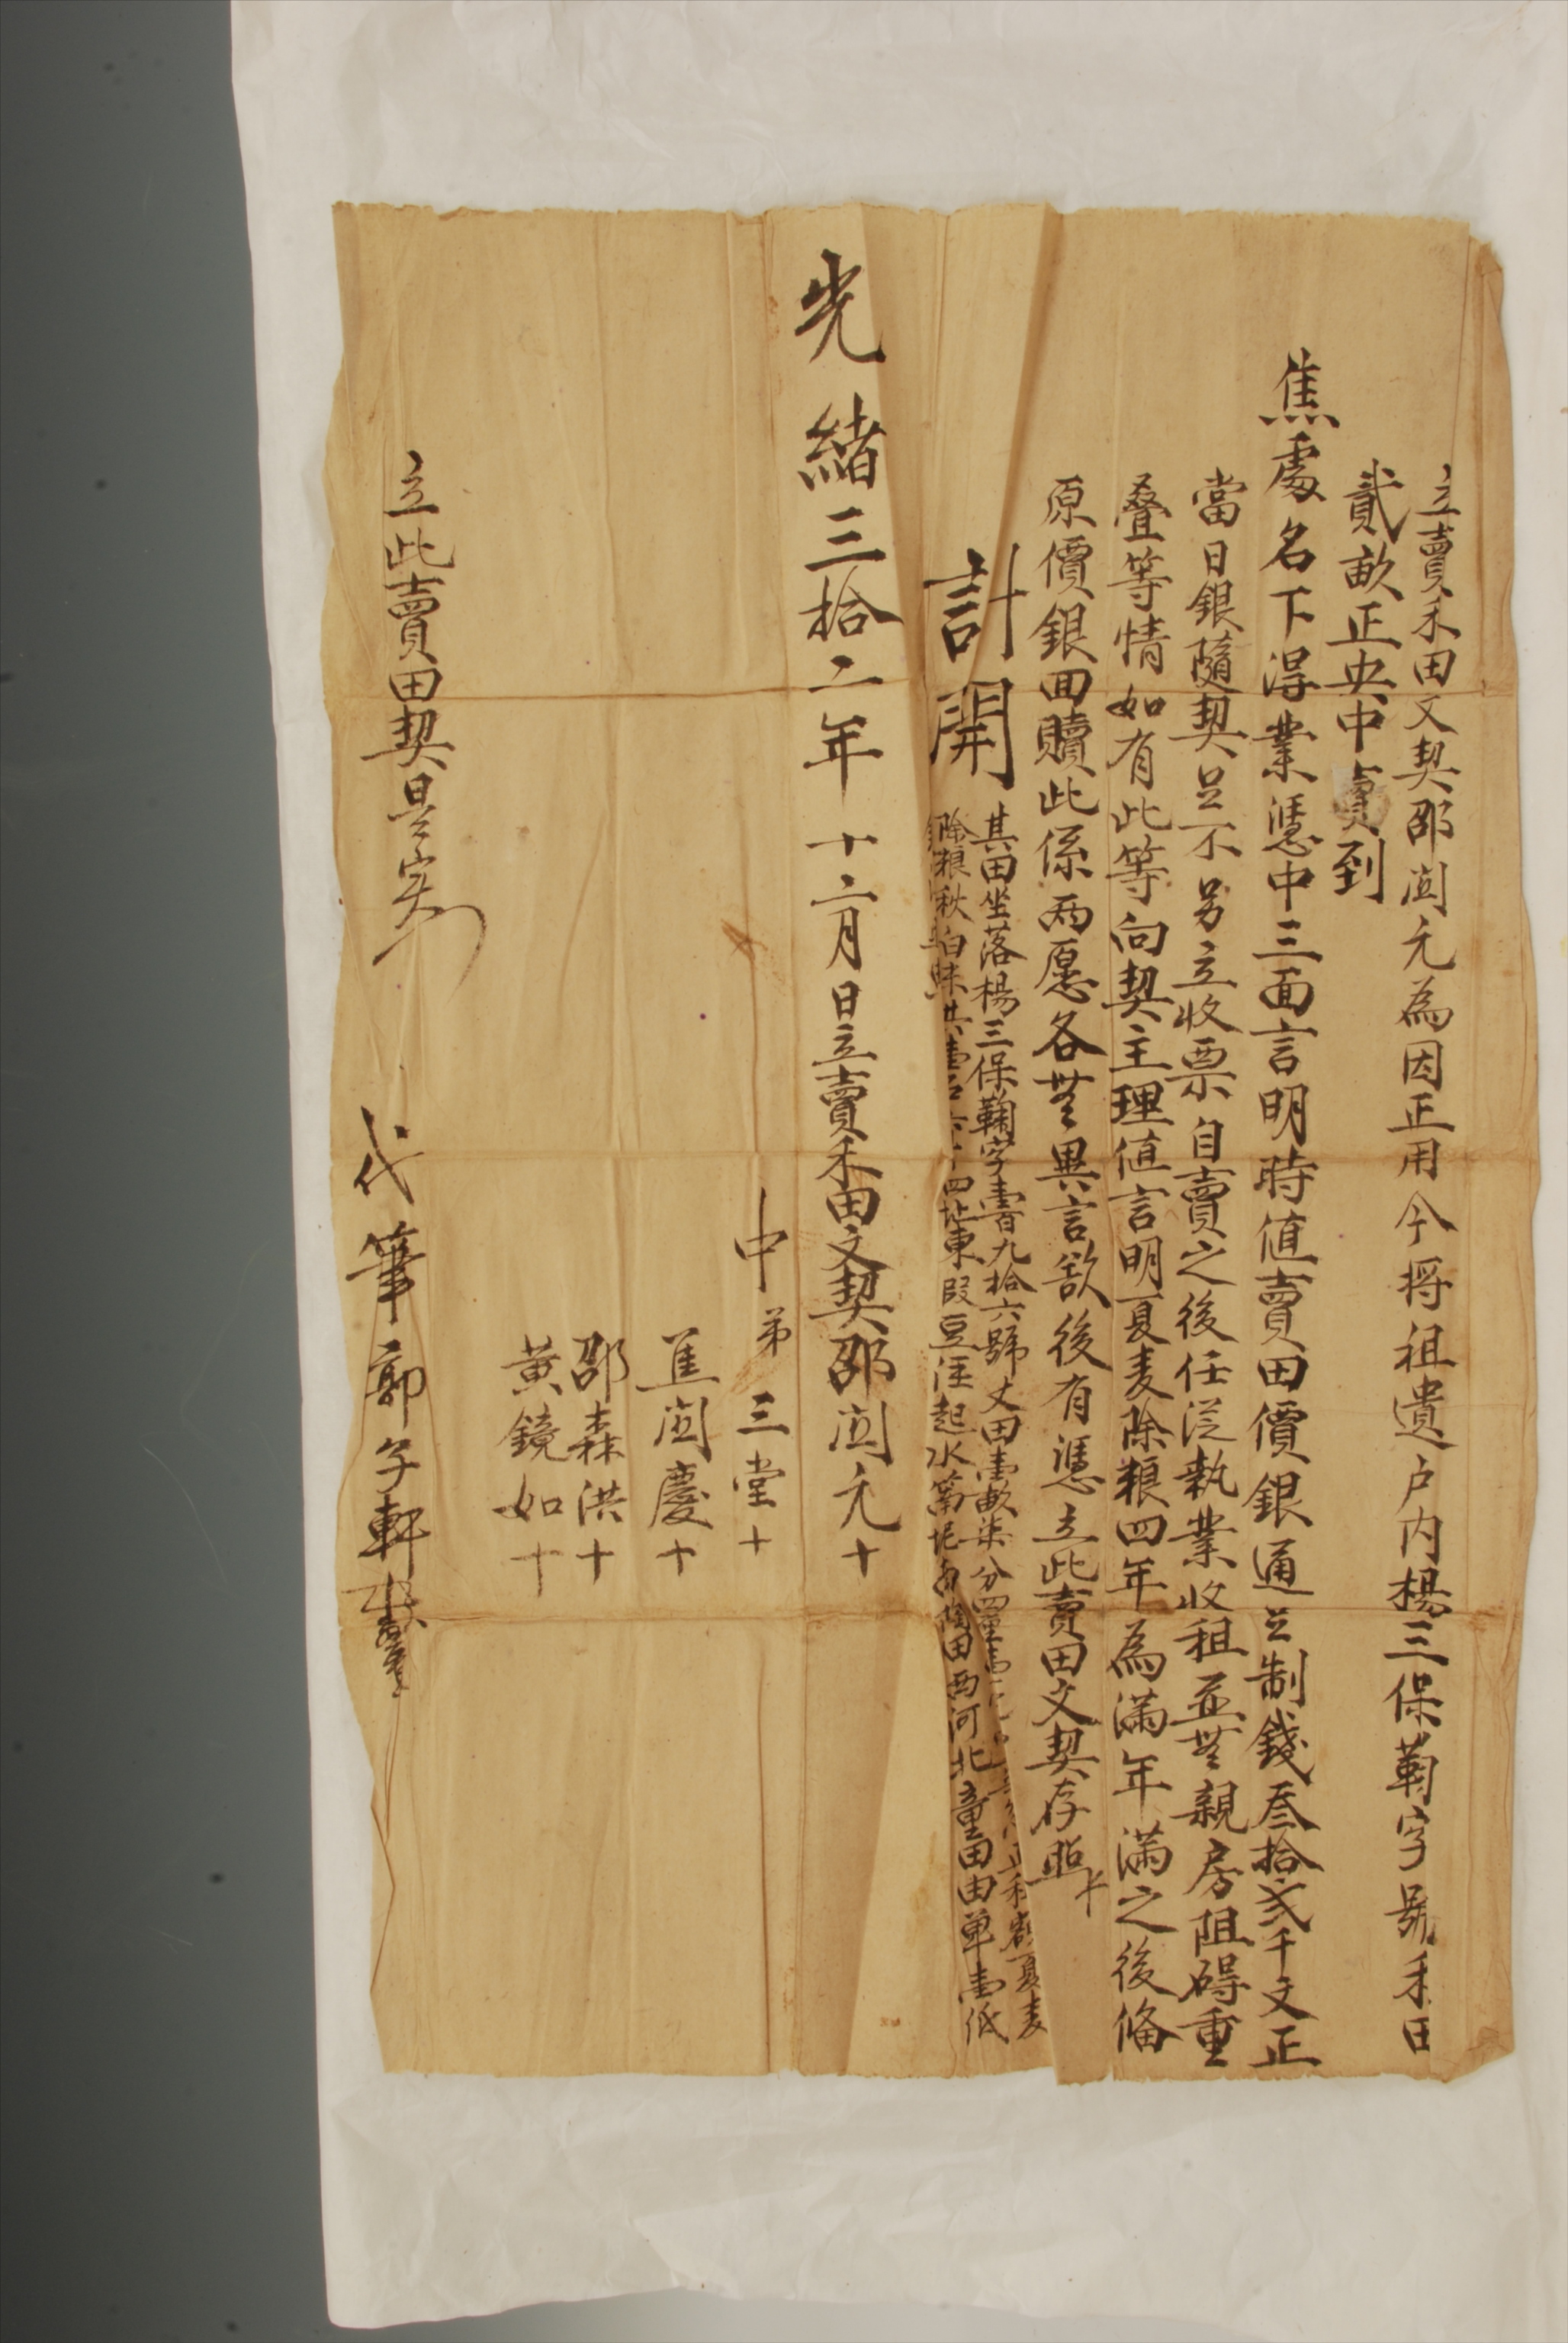 立賣禾田文契邵閏元為因正用今將祖遺户内楊三保鞠字號禾田
貳畝正央中賣到
焦處名下淂業憑中三面言明時值賣田價銀通足制錢叁拾弍千文正
當日銀隨契足不另立收票自賣之後任從執業收租並無親房阻碍重
叠等情如有此等向契主理值言明夏麦除粮四年為滿年滿之後俻
原價銀回贖此係兩愿各無異言欲後有憑立此賣田文契存照
計開
其田坐落楊三保鞠字壹百九拾六號丈田壹畝柒分四厘 夏麦
除粮秋 四址東段豆汪起水 田西河北童田由单壹低
光緒三拾二年十二月日立賣禾田文契邵閏元十
中弟三堂十
焦閏慶十
邵森洪十
黄鏡如十
代筆郭子軒
立此賣田契是实